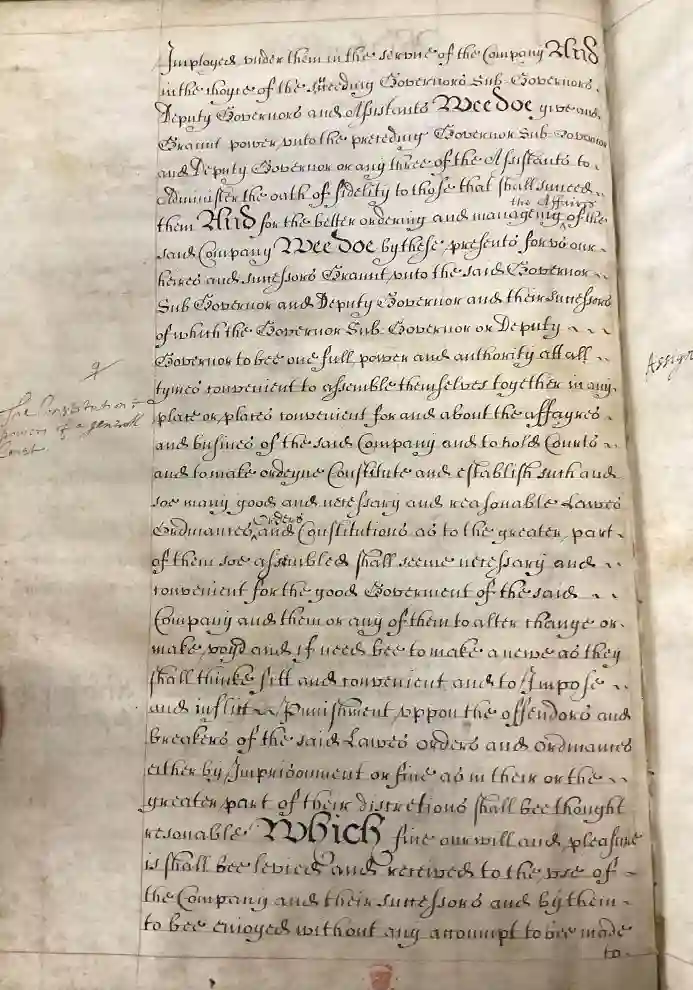 Imployed vnder them in the servce of the Company And
in the choyce of the succeeding Governors Sub-Governors
Deputy Governors and Assistants Wee Doe give and
Graunt power vnto the preceding Governor Sub-Governor
and Deputy Governor or any three of the Assistants to
Administer the oath of fidelity to those that shall succeed
the Affairs
them And for the better ordering and managing of the
said Company Wee Doe by these presents for vs our
heires and successors Graunt vnto the said Governor
Sub Governor and Deputy Governor and their successors
of which the Governor Sub-Governor or Deputy
Governor to bee one full power and authority att all
9
tymes convenient to assemble themselves together in any
The Constitution &
place or places convenient for and about the affayres
powers of a generall
and busines of the said Company and to hold Courts
Court
and to make ordeyne Constitute and establish such and
soe many good and necessary and reasonable Lawes
Orders
Ordinances and Constitutions as to the greater part
of them soe assembled shall seeme necessary and
convenient for the good Goverment of the said
Company and them or any of them to alter change or
make voyd and if need bee to make a newe as they
shall thinke fitt and convenient and to Impose
and inflict Punishment vppon the offendors and
breakers of the said Lawes orders and ordinances
either by Imprisonment or fine as in their or the
greater part of their discretions shall bee thought
resonable Which fine our will and pleasure
is shall bee levied and received to the vse of
the Company and their successors and by them
to bee enioyed without any accoumpt to bee made
to